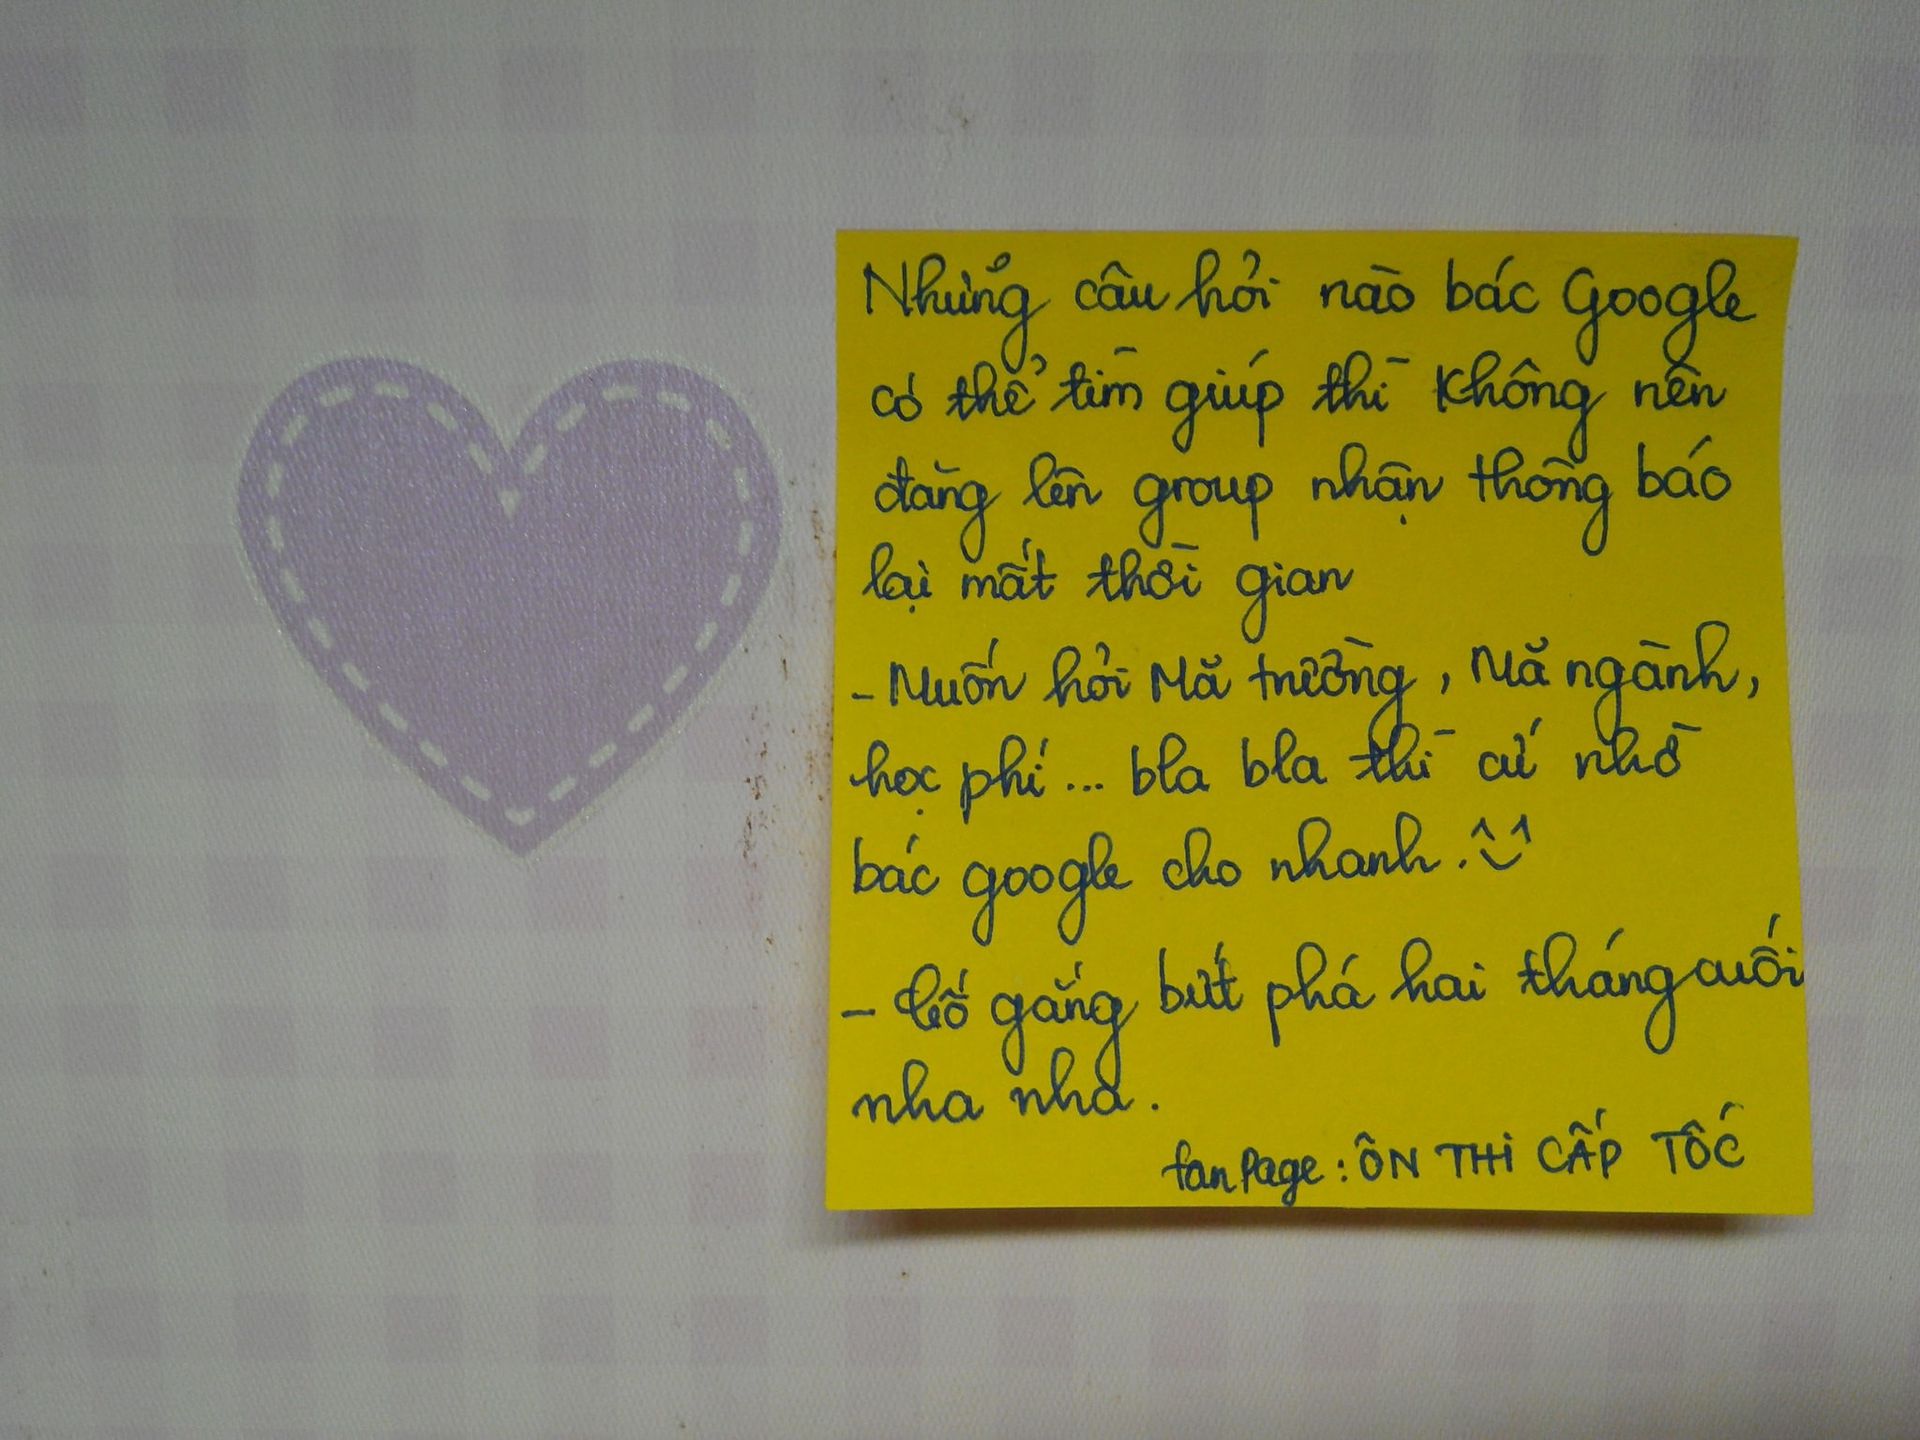 Những câu hỏi nào bác Google
có thể tìm giúp thì không nên
đăng lên group nhận thông báo
lại mất thời gian
- Muốn hỏi Mã trường, Mã ngành,
học phí... bla bla thì cứ nhờ
bác google cho nhanh. ^^
- Cố gắng bứt phá hai tháng cuối
nha nha.
fanpage: ÔN THI CẤP TỐC